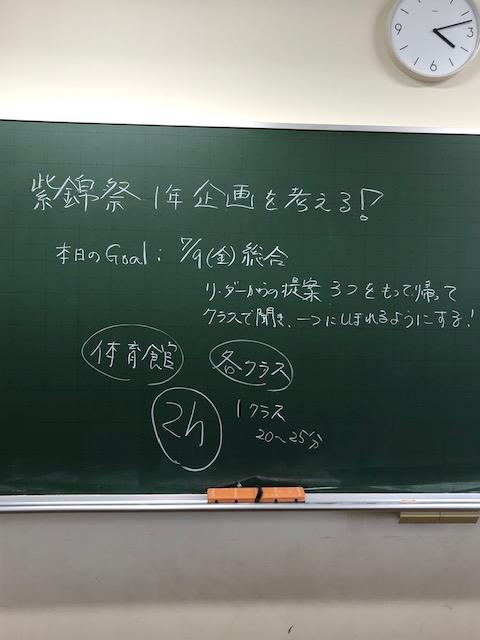 紫錦祭 1年 企画を考える!?
本日のGoal: 7/9(金)総合
リーダーからの提案 3つをもって帰って
クラスで聞き、一つにしぼれるようにする!
体育館 各クラス
2h
1クラス
20〜25分
9
3
6